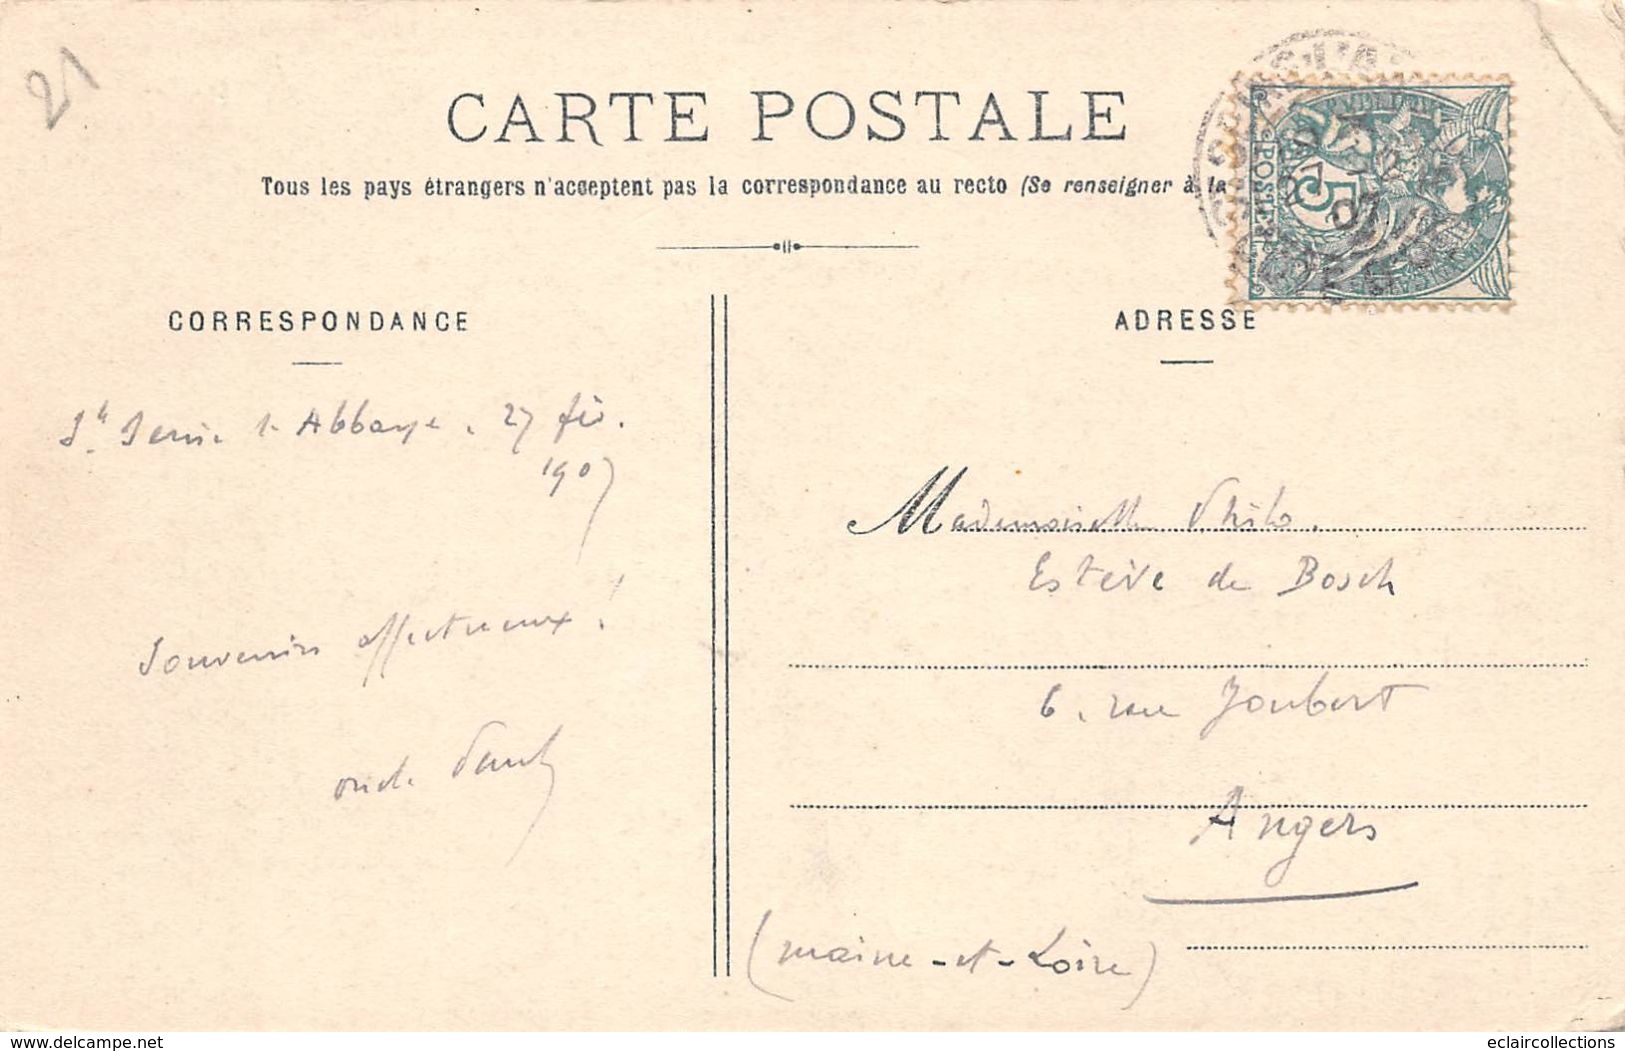 21
CARTE POSTALE
Tous les pays étrangers n'acceptent pas la correspondance au recto (Se renseigner à la
POSTES
5
27
07
CORRESPONDANCE
ADRESSE
Abbaye. 27 fév.
1907
Souvenirs affectueux!
oncle Paul
Mademoiselle Philo.
Estève de Bosch
6. rue Joubert
Angers
(Maine-et-Loire)
www.delcampe.net
eclaircollections